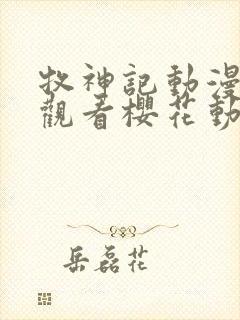 牧神記動漫
觀看櫻花動
岳磊花